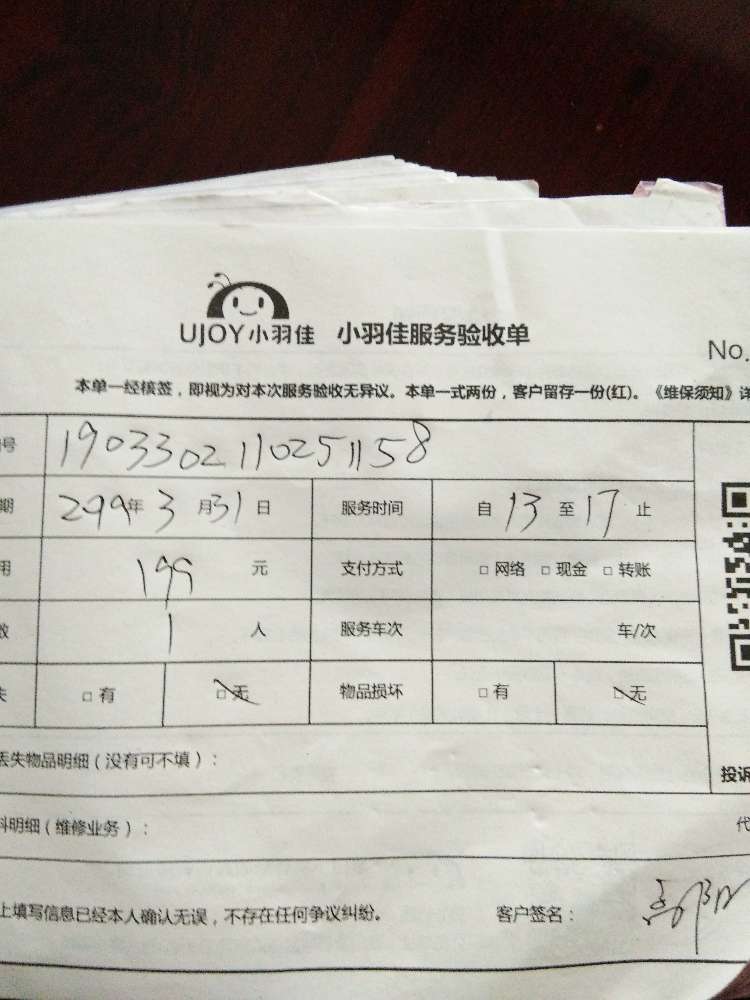 UJOY小羽佳 小羽佳服务验收单
No.
本单一经核签，即视为对本次服务验收无异议。本单一式两份，客户留存一份(红)。《维保须知》详
号 1903302110251158
期 299年3月31日 服务时间 自13至17止
用 199元 支付方式 □网络 □现金 □转账
数 1人 服务车次 车/次
失 □有 □无 物品损坏 □有 □无
丢失物品明细（没有可不填）：
投诉
料明细（维修业务）：
代
上填写信息已经本人确认无误，不存在任何争议纠纷。 客户签名：